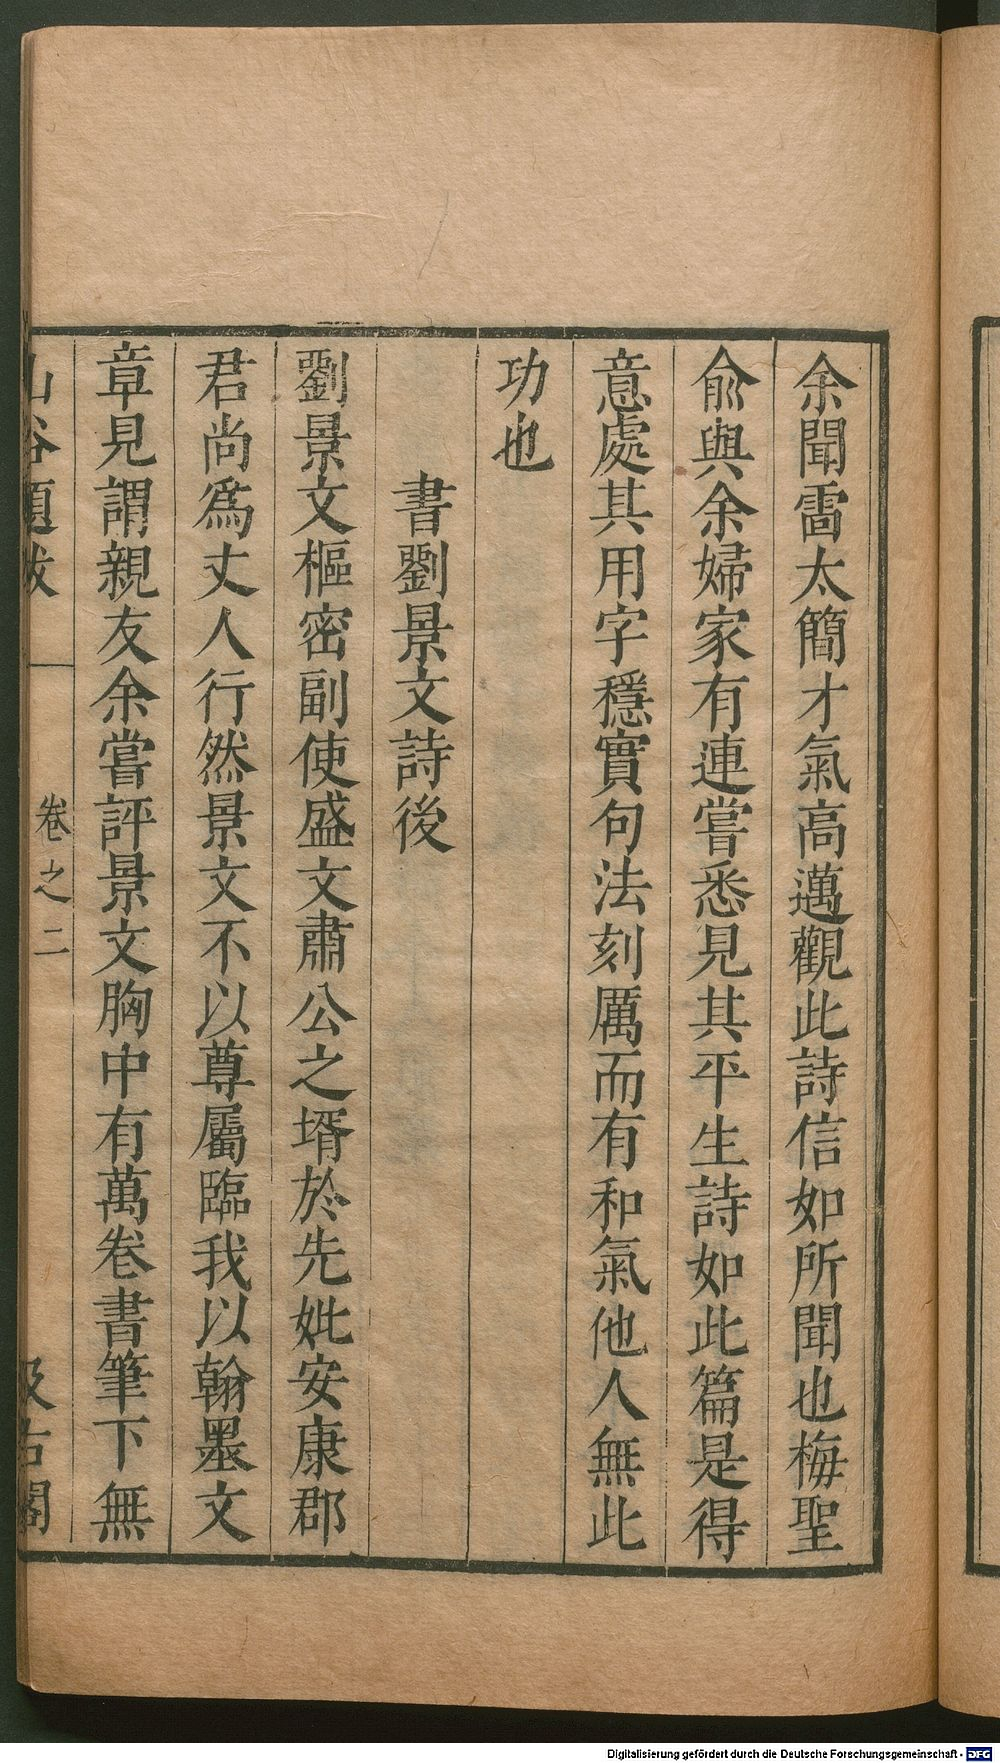 余聞雷太簡才氣高邁觀此詩信如所聞也梅聖
俞與余婦家有連嘗悉見其平生詩如此篇是得
意處其用字穩實句法刻厲而有和氣他人無此
功也
書劉景文詩後
劉景文樞密副使盛文肅公之壻於先妣安康郡
君尚爲丈人行然景文不以尊屬臨我以翰墨文
章見謂親友余嘗評景文胸中有萬卷書筆下無
山谷題跋 卷之二 汲古閣
Digitalisierung gefördert durch die Deutsche Forschungsgemeinschaft - DFG